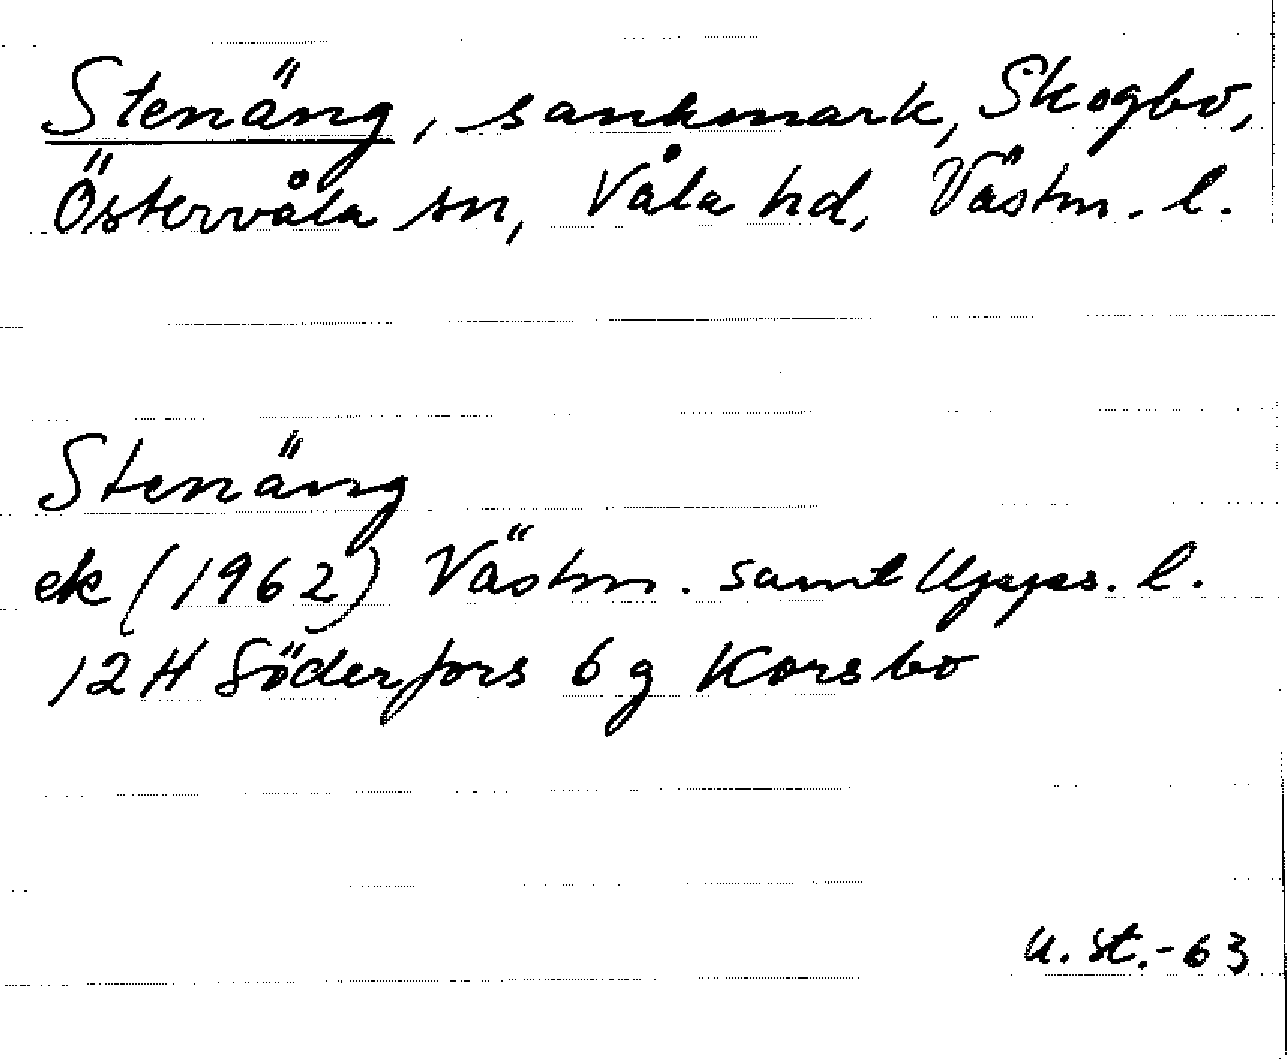 Stenäng, sankmark, Skogbo,
Östervåla sn, Våla hd, Västm. l.
Stenäng
ek (1962) Västm. samt Upps. l.
12 H Söderfors 6 g Korsbo
U. St. -63